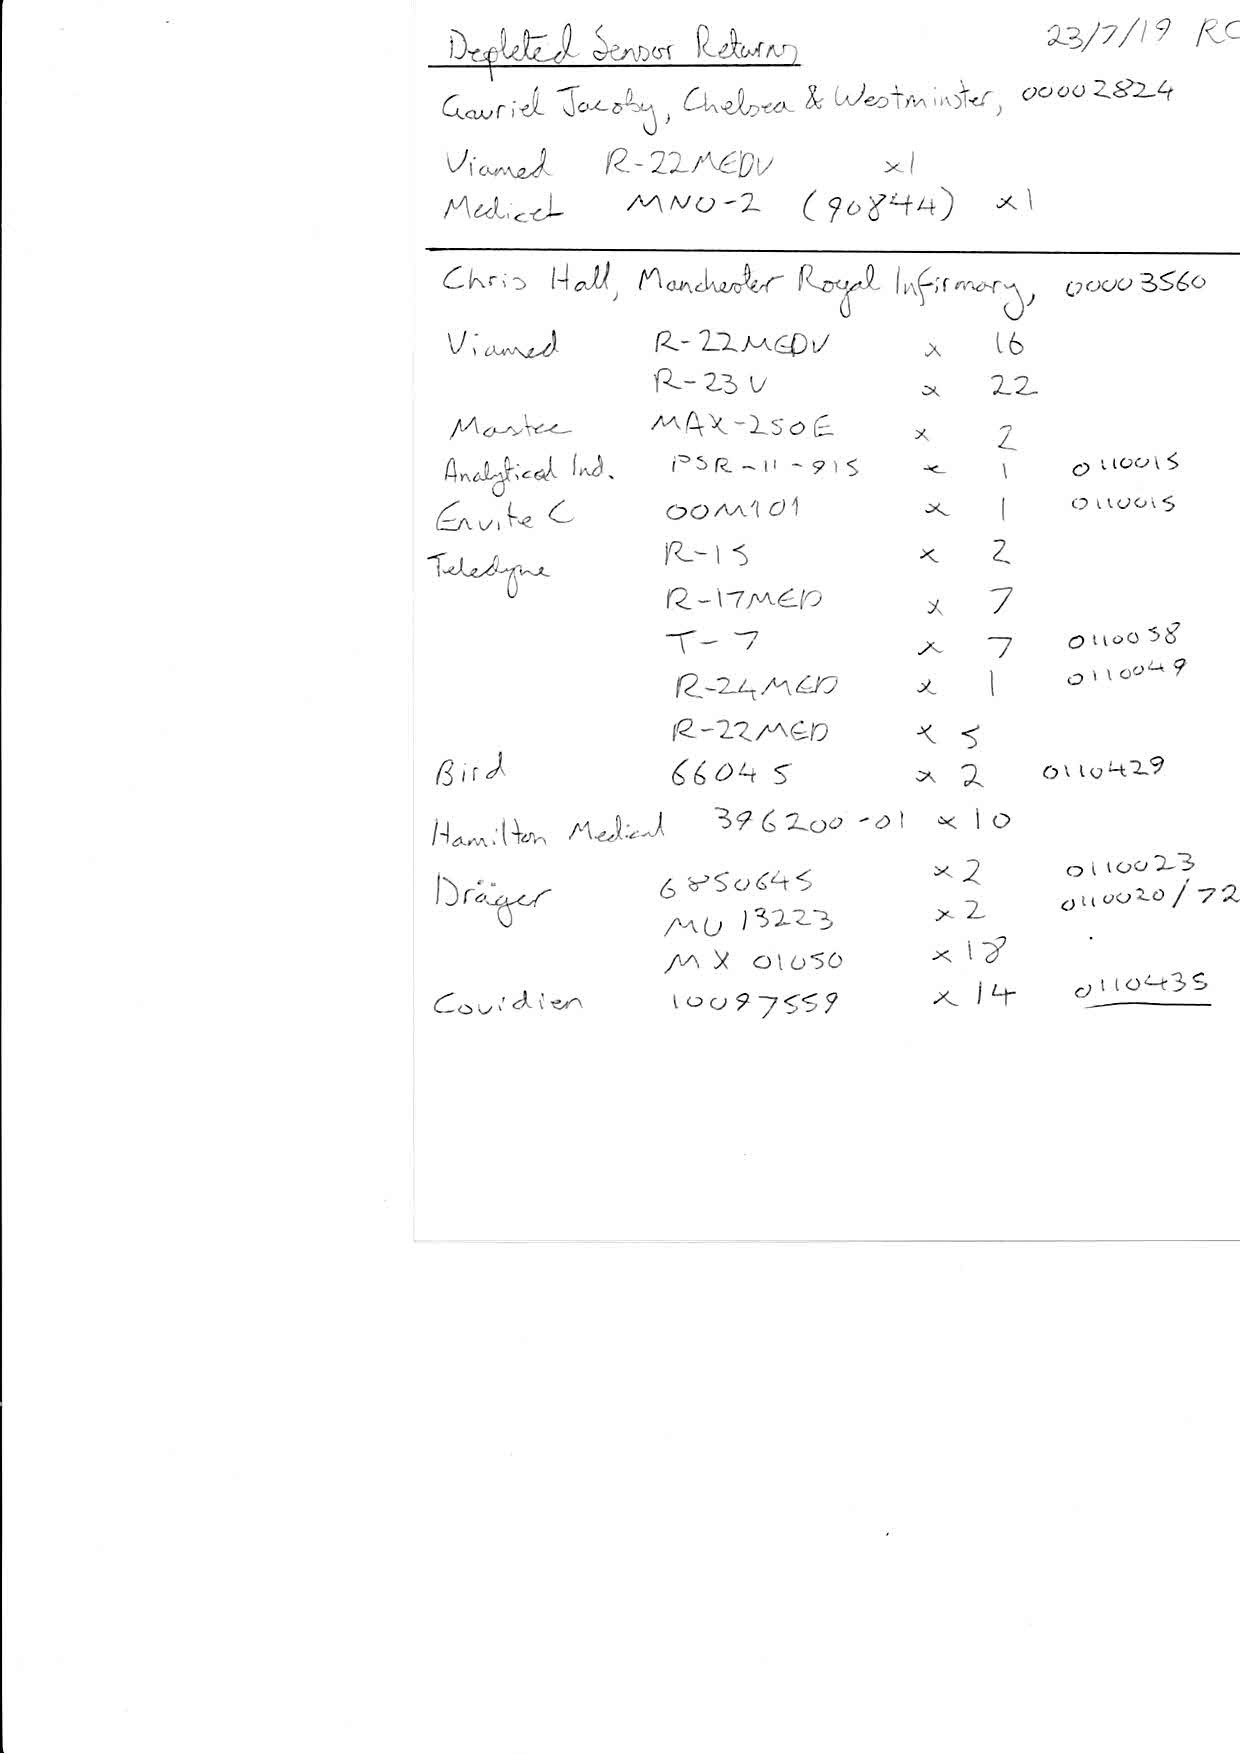 Depleted Sensor Returns 23/7/19 RC
Gavriel Jacoby, Chelsea & Westminster, 00002824
Viamed R-22MEDV x1
Medicel MNO-2 (90844) x1
Chris Hall, Manchester Royal Infirmary, 00003560
Viamed R-22MEDV x 16
R-23V x 22
Maxtec MAX-250E x 2
Analytical Ind. PSR-11-915 x 1 0110015
Envite C OOM101 x 1 0110015
Teledyne R-15 x 2
R-17MED x 7
T-7 x 7 0110058
R-24MED x 1 0110049
R-22MED x 5
Bird 66045 x 2 0110429
Hamilton Medical 396200-01 x 10
Dräger 6850645 x2 0110023
MU 13223 x2 0110020/72
MX 01050 x18
Covidien 10097559 x 14 0110435